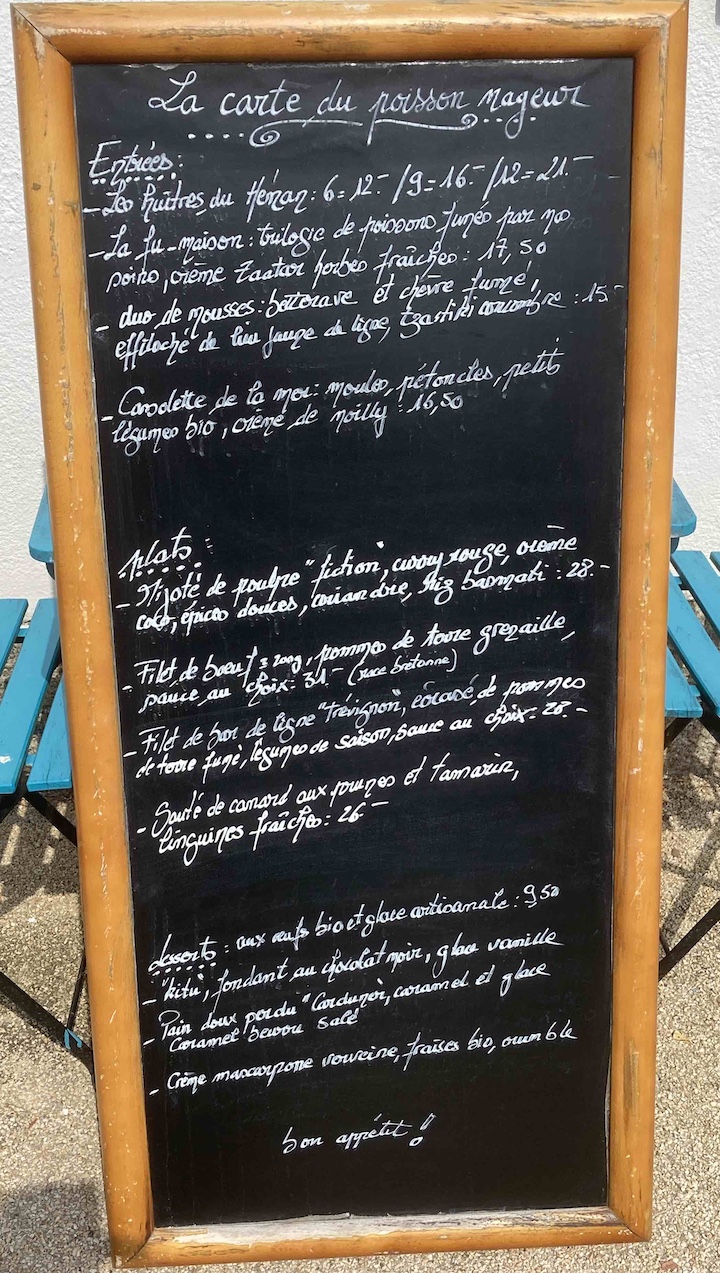 La carte du poisson nageur
Entrées :
- Les huîtres du Hénan : 6=12.- / 9=16.- / 12=21.-
- La fu-maison : trilogie de poissons fumés par nos
soins, crème zaatar herbes fraîches : 17,50
- duo de mousses : betterave et chèvre fumé,
effiloché de lieu jaune de ligne, tzastiki concombre : 15.-
- Cassolette de la mer : moules, pétoncles, petits
légumes bio, crème de noilly : 16,50
plats :
- Mijoté de poulpe "fiction", curry rouge, crème
coco, épices douces, coriandre, riz basmati : 28.-
- Filet de boeuf ± 200g, pommes de terre grenaille,
sauce au choix : 31.- (race bretonne)
- Filet de bar de ligne "Trévignon", écrasé de pommes
de terre fumé, légumes de saison, sauce au choix : 28.-
- Sauté de canard aux prunes et tamarin,
linguines fraîches : 26.-
desserts : aux oeufs bio et glace artisanale : 9,50
- "kitu", fondant au chocolat noir, glace vanille
- Pain doux perdu caramel et glace
caramel beurre salé
- Crème mascarpone verveine, fraises bio, crumble
bon appétit !